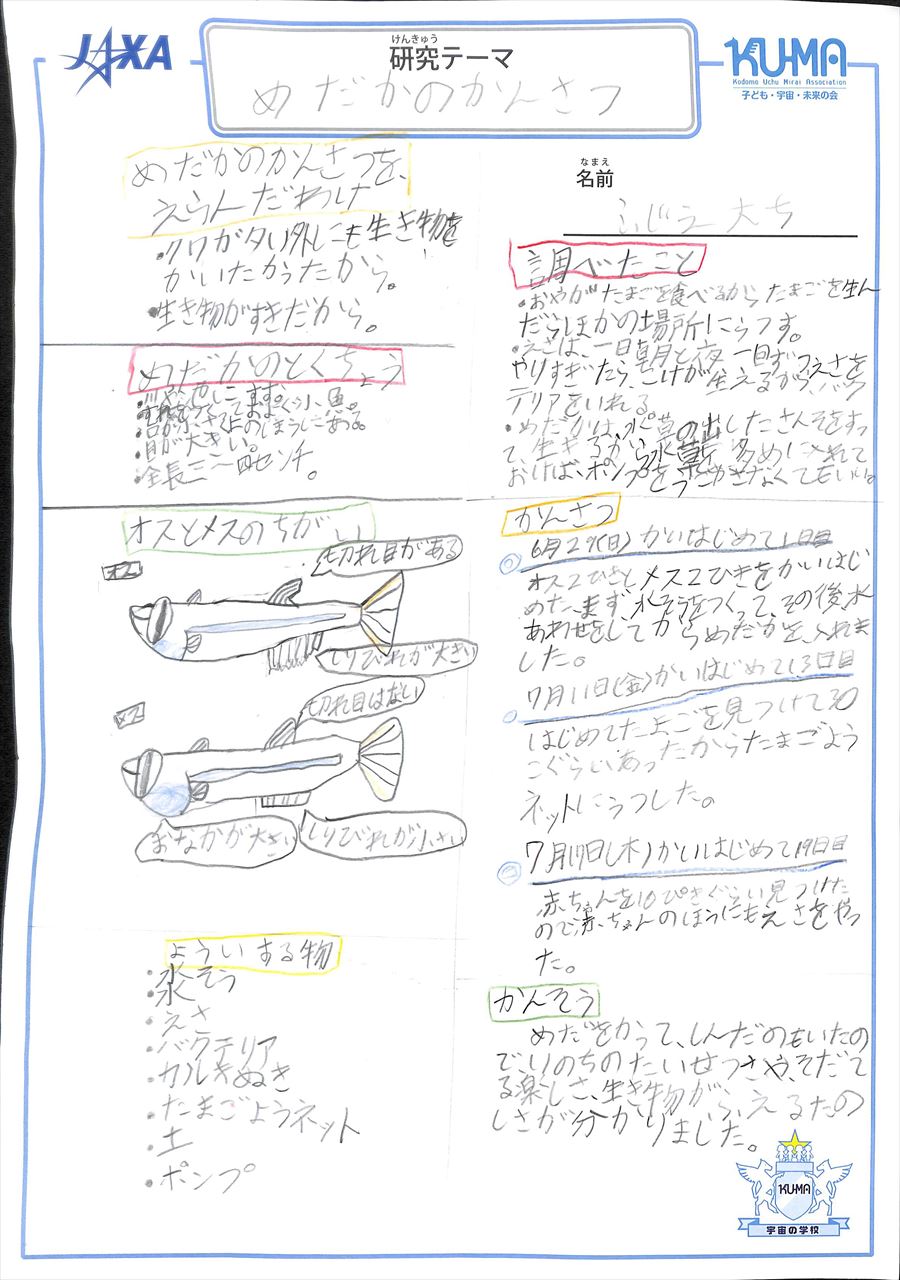 JAXA
けんきゅう
研究テーマ
めだかのかんさつ
KUMA
Kodomo Uchu Mirai Association
子ども・宇宙・未来の会
なまえ
名前
めだかのかんさつを、
えらんだわけ
・クワガタい外にも生き物を
かいたかったから。
・生き物がすきだから。
めだかのとくちょう
・目が大きい。
・全長三〜四センチ。
オスとメスのちがい
オス
切れ目がある
しりびれが大きい
メス
切れ目はない
おなかが大きい
しりびれが小さい
よういする物
・水そう
・水
・えさ
・バクテリア
・カルキぬき
・たまごようネット
・土
・ポンプ
調べたこと
・おやがたまごを食べるからたまごを生ん
だらほかの場所にうつす。
・えさは、一日朝と夜一回ずつえさを
やりすぎたら、こけが生えるから、バク
テリアをいれる。
・めだかは、水草の出したさんそをすっ
て生きるから水草を多めに入れて
おけば、ポンプをつかなくてもいい。
かんさつ
6月29(日)かいはじめて1日目
オス2ひきとメス2ひきをかいはじ
めた。まず、水そうをつくって、その後水
あわせをしてからめだかを、入れま
した。
7月11日(金)かいはじめて13日目
はじめてたまごを見つけて30
こぐらいあったからたまごよう
ネットにうつした。
7月17日(木)かいはじめて19日目
赤ちゃんを10ぴきぐらい見つけた
ので、赤ちゃんのほうにもえさをやっ
た。
かんそう
めだをかって、しんだのもいたの
で、いのちのたいせつさや、そだて
る楽しさ、生き物が、ふえるたの
しさが分かりました。
KUMA
宇宙の学校